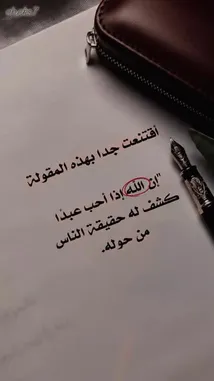 أقتنعت جدا بهذه المقولة
"إن الله إذا أحب عبدًا
كشف له حقيقة الناس
من حوله.